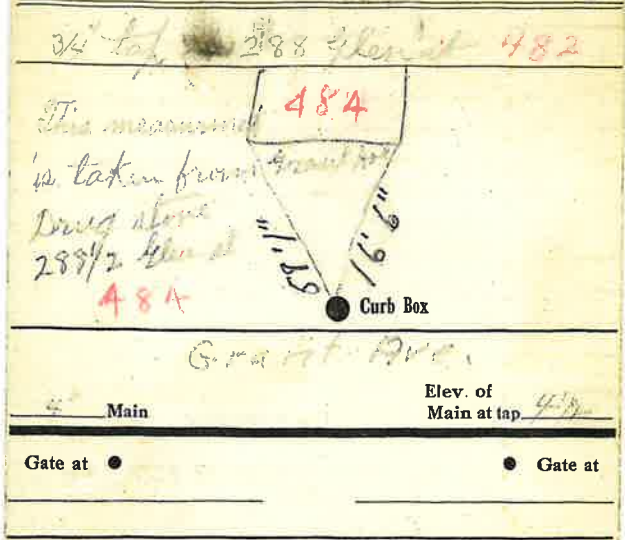 3/4" tap 288 Glen st 482
484
This measurement
is taken from Grant Ave
Drug store
288 1/2 Glen st
484
Curb Box
Grant Ave.
4" Main
Elev. of
Main at tap
Gate at
Gate at